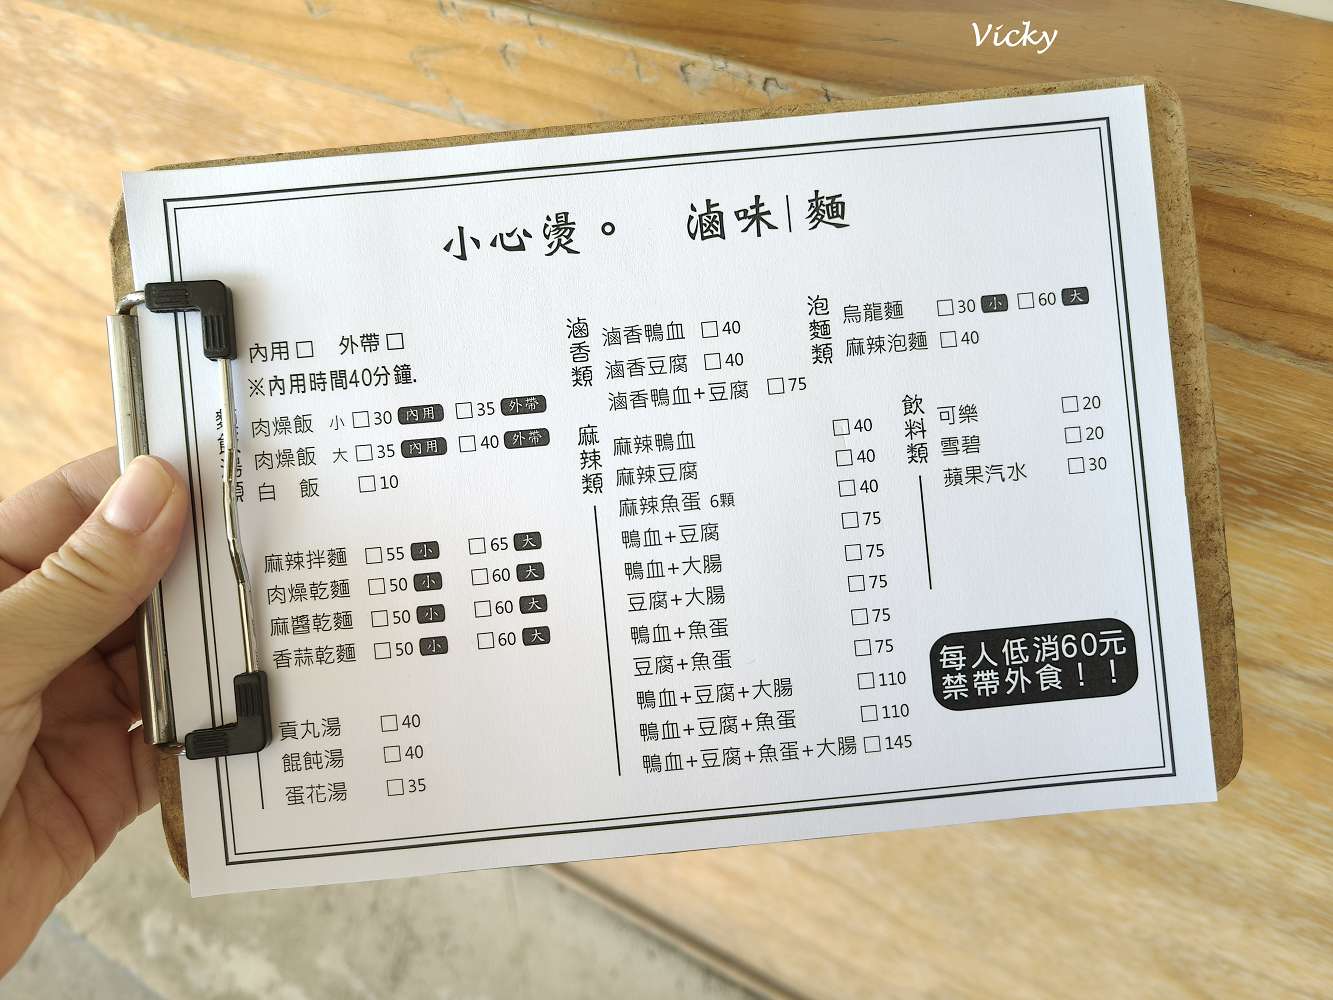 Vicky
小心燙。 滷味|麵
內用□ 外帶□
※內用時間40分鐘.
肉燥飯 小 □30 內用 □35 外帶
肉燥飯 大 □35 內用 □40 外帶
白 飯 □10
麻辣拌麵 □55 小 □65 大
肉燥乾麵 □50 小 □60 大
麻醬乾麵 □50 小 □60 大
香蒜乾麵 □50 小 □60 大
貢丸湯 □40
餛飩湯 □40
蛋花湯 □35
滷香類
滷香鴨血 □40
滷香豆腐 □40
滷香鴨血+豆腐 □75
麻辣類
麻辣鴨血 □40
麻辣豆腐 □40
麻辣魚蛋 6顆 □40
鴨血+豆腐 □75
鴨血+大腸 □75
豆腐+大腸 □75
鴨血+魚蛋 □75
豆腐+魚蛋 □75
鴨血+豆腐+大腸 □110
鴨血+豆腐+魚蛋 □110
鴨血+豆腐+魚蛋+大腸 □145
泡麵類
烏龍麵 □30 小 □60 大
麻辣泡麵 □40
飲料類
可樂 □20
雪碧 □20
蘋果汽水 □30
每人低消60元
禁帶外食！！